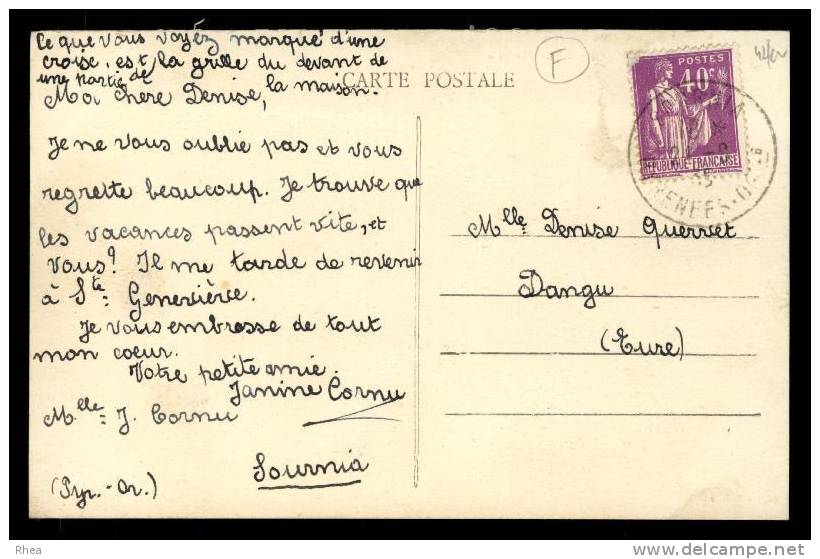 Ce que vous voyez marqué d'une
croise, est la grille du devant de
une partie de la maison.
CARTE POSTALE
F
Ma chère Denise,
Je ne vous oublie pas et vous
regrette beaucoup. Je trouve que
les vacances passent vite, et
vous? Il me tarde de revenir
à Ste Geneviève.
Je vous embrosse de tout
mon coeur.
Votre petite amie.
Janine Cornu
Mlle J. Cornu
Sournia
(Pyr.-Or.)
POSTES
40c
REPUBLIQUE-FRANÇAISE
Mlle Denise Querret
Dangu
(Eure)
Rhea
delcampe.net